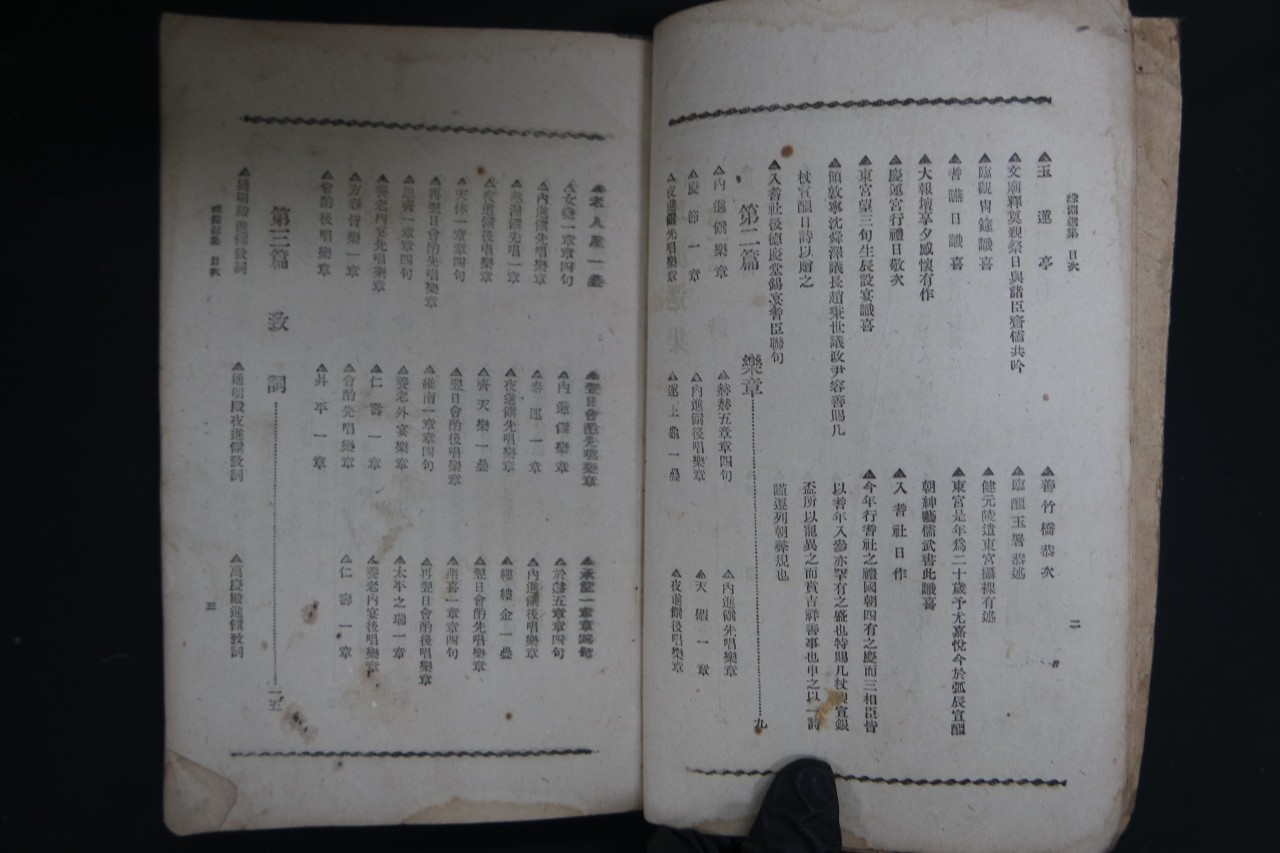 目次
二
▲玉蓮亭
▲善竹橋恭次
▲文廟釋奠親祭日與諸臣齋儒共吟
▲臨醞玉署恭述
▲臨觀胄筵識喜
▲健元陵遣東宮攝祼有述
▲耆讌日識喜
▲東宮是年爲二十歲予尤嘉悅今於弧辰宣醞
朝紳曁儒武書此識喜
▲大報壇享夕感懷有作
▲慶運宮行禮日敬次
▲入耆社日作
▲東宮望三旬生辰設宴識喜
▲今年行耆社之禮國朝四有之慶而三相臣皆
以耆年入參亦罕有之盛也特賜几杖 宣銀
盃所以寵異之而賁吉祥善事也申之以一詩
謹遵列朝彝規也
▲領敦寧沈舜澤議長趙秉世議政尹容善賜几
杖宣醞日詩以贈之
▲入耆社後德慶堂錫宴耆臣聯句
第二篇 樂章 九
▲內進饌樂章
▲赫赫五章章四句
▲內進饌先唱樂章
▲慶節一章
▲內進饌後唱樂章
▲天假一章
▲夜進饌先唱樂章
▲運上氣一曡
▲夜進饌後唱樂章
▲老人星一曡
▲翌日會酌先唱樂章
▲女發一章章四句
▲內進饌樂章
▲於赫五章章四句
▲內進饌先唱樂章
▲泰運一章
▲內進饌後唱樂章
▲夜進饌先唱樂章
▲縷縷金一曡
▲夜進饌後唱樂章
▲齊天樂一曡
▲翌日會酌先唱樂章
▲天休一章章四句
▲翌日會酌後唱樂章
▲再翌日會酌先唱樂章
▲維南一章章四句
▲再翌日會酌後唱樂章
▲養老外宴樂章
▲太平之瑞一章
▲養老內宴先唱樂章
▲仁壽一章
▲養老內宴後唱樂章
▲方春皆樂一章
▲會酌先唱樂章
▲仁壽一章
▲會酌後唱樂章
▲昇平一章
第三篇 致詞 一五
▲通明殿進饌致詞
▲通明殿夜進饌致詞
▲萬慶殿進饌致詞
目次
三